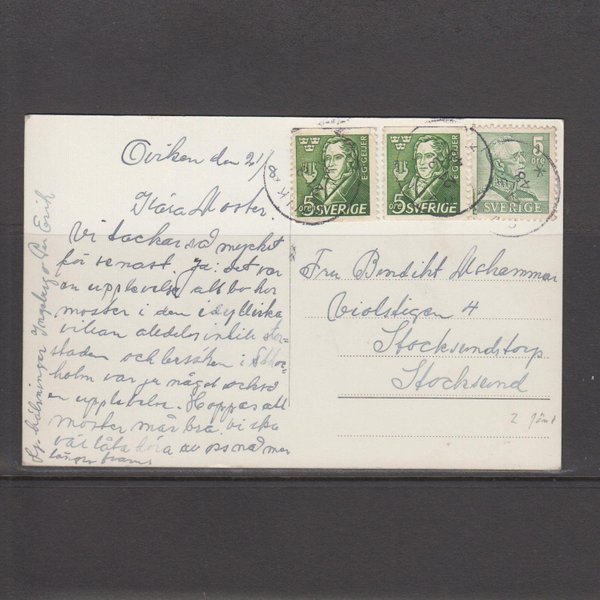 Oviken den 21/8
Kära Moster.
Vi tackar så mycket
för senast. Ja, det var
en upplevelse att bo hos
moster i den idylliska
villan alldeles intill stor-
staden och besöken i Stock-
holm var ju något också
en upplevelse. Hoppas att
moster mår bra. Vi ska
väl låta höra av oss nå mer
längre fram
Hj. hälsningar Ingeborg o Per Erik
5 öre
SVERIGE
E·G·GEIJER
5 öre
SVERIGE
E·G·GEIJER
5
öre
SVERIGE
Fru Bendikt
Violstigen 4
Stocksundstorp
Stocksund